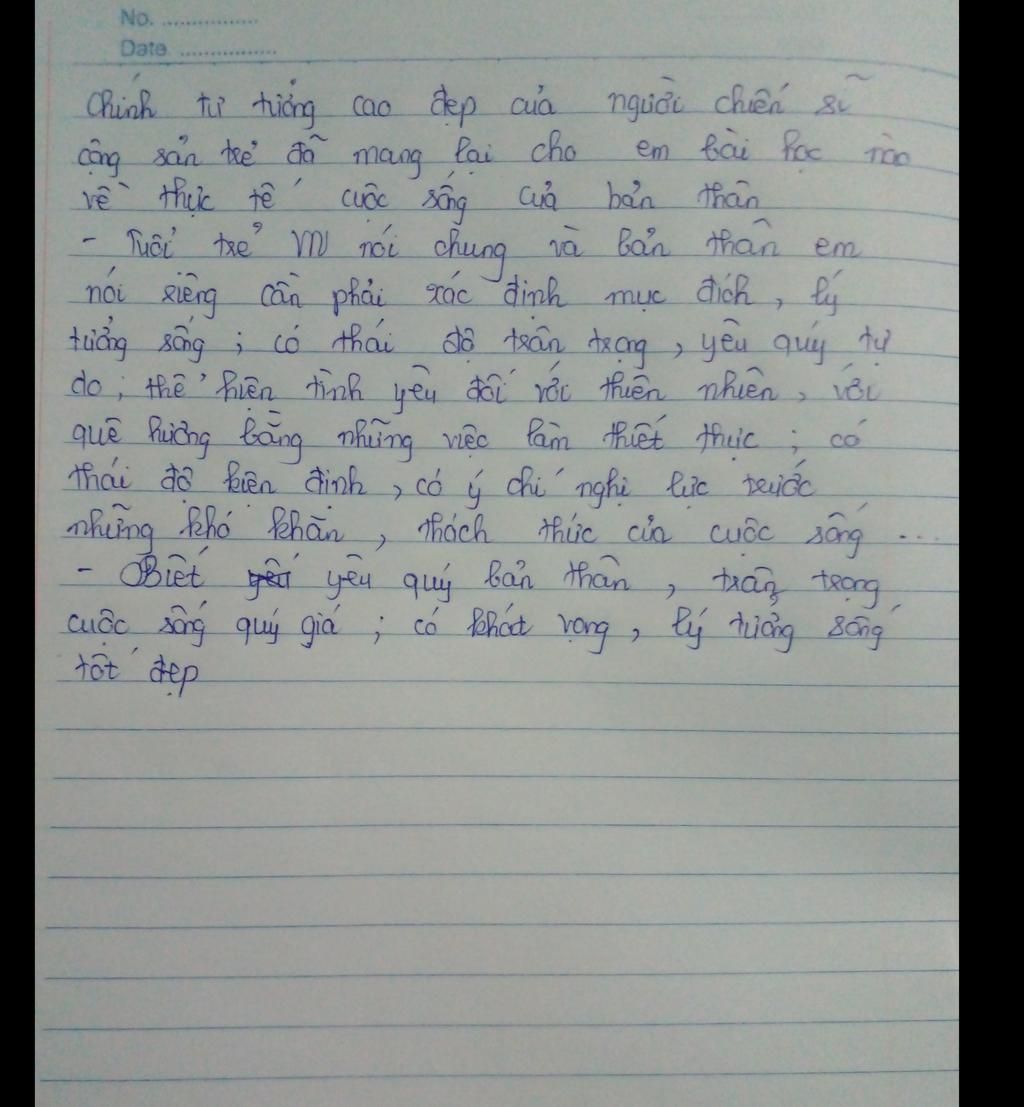 No. ................
Date ................
Chính tư tưởng cao đẹp của người chiến sĩ
cộng sản trẻ đã mang lại cho em bài học nào
về thực tế cuộc sống của bản thân
- Tuổi trẻ VN nói chung và bản thân em
nói riêng cần phải xác định mục đích, lý
tưởng sống; có thái độ trân trọng, yêu quý tự
do; thể hiện tình yêu đối với thiên nhiên, với
quê hương bằng những việc làm thiết thực; có
thái độ kiên định, có ý chí nghị lực trước
những khó khăn, thách thức của cuộc sống ...
- Biết yêu quý bản thân, trân trọng
cuộc sống quý giá; có khát vọng, lý tưởng sống
tốt đẹp